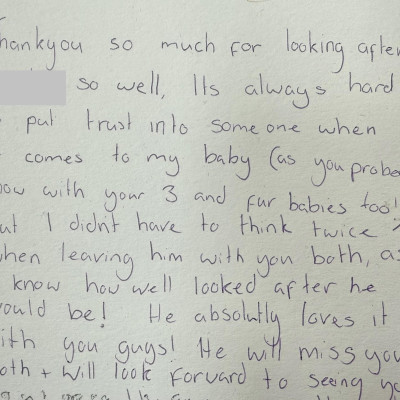 hankyou so much for looking after
so well, Its always hard
put trust into someone when
comes to my baby (as you probe
ow with your 3 and fur babies too!
ut I didn't have to think twice
hen leaving him with you both, as
know how well looked after he
ould be! He absolutly loves it
ith you guys! He will miss you
oth + will look forward to seeing yo